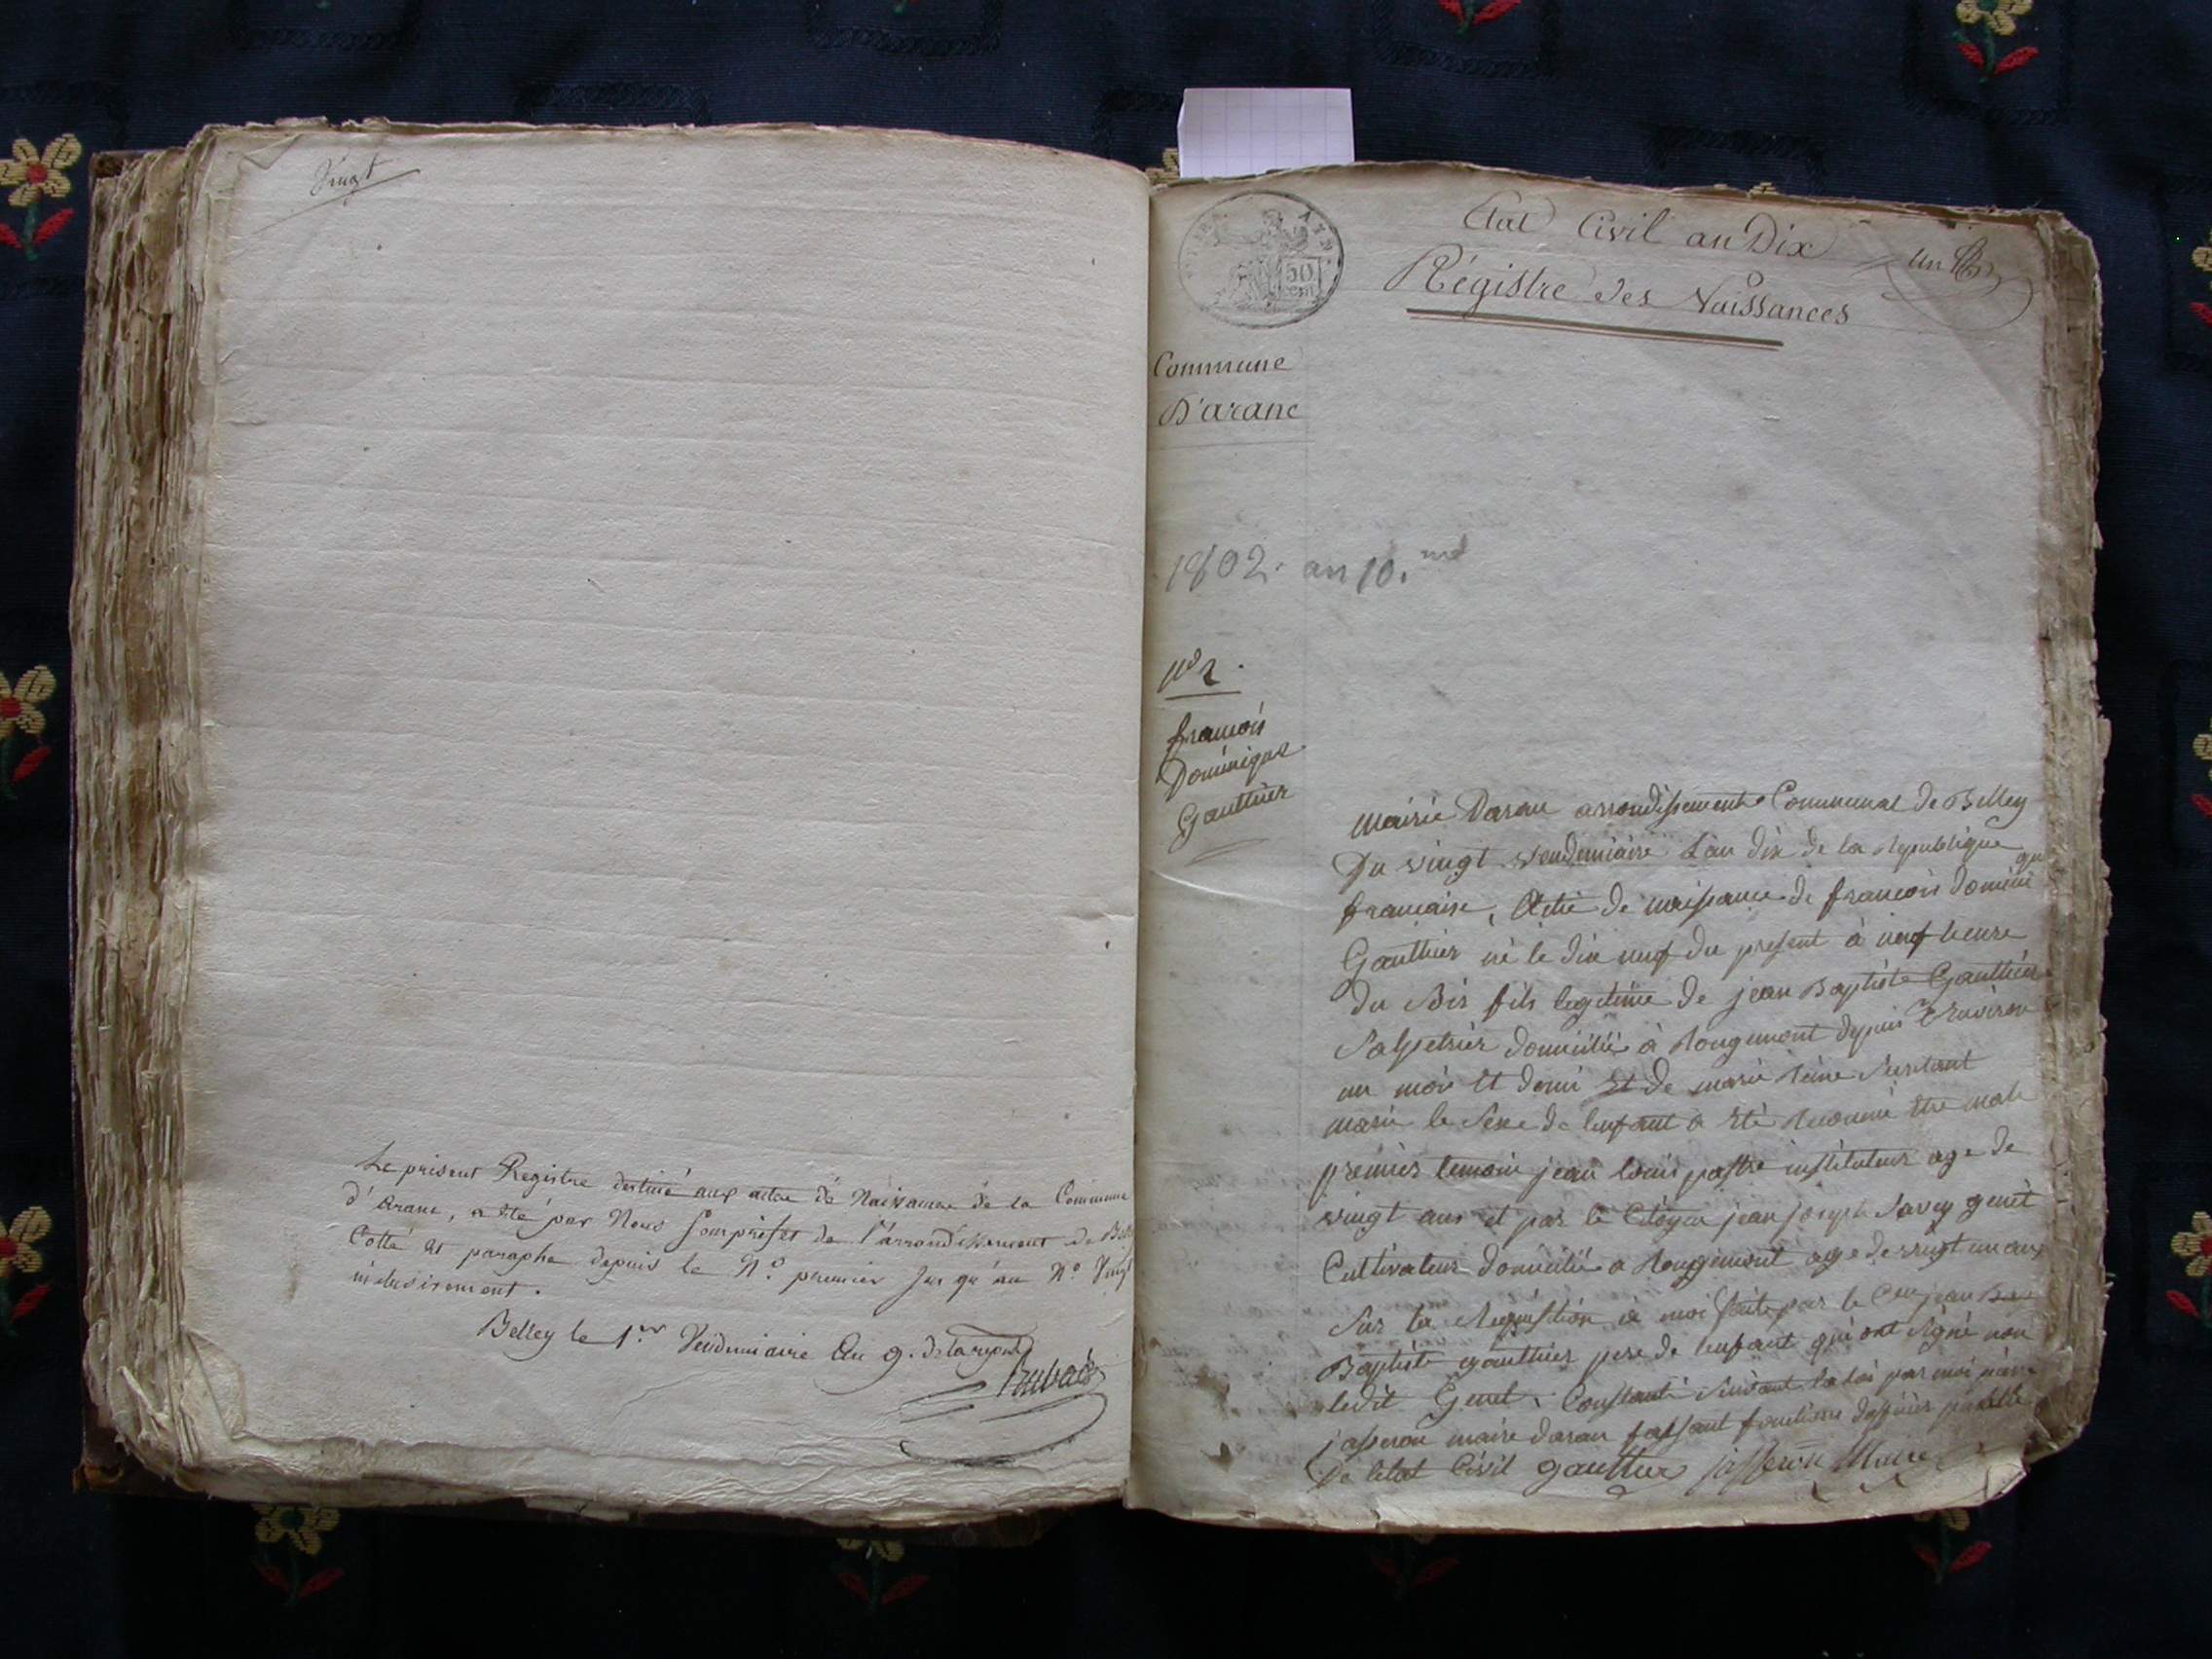 Vingt
Le présent Registre destiné aux actes de Naissances de la Commune
d'aranc, a été par Nous Sousprefet de l'arrondissement de Bell
Cotté et paraphe depuis le N.o premier Jusqu'au N.o Vingt
inclusivement.
Belley le 1.er Vendemiaire An 9. de la repub
50
cen
Etat Civil an Dix
Un
Régistre des Naissances
Commune
D'aranc
1802. an 10.me
francois
Dominique
Gauthier
Mairie Daran arrondissement Communal de Belley
Du vingt vendemiaire Lan dix de la Republique
francaise, Acte de naissance de francois Domini
que
Gauthier né le dix neuf du present à neuf heure
du Soir fils legitime de jean Baptiste Gauthier
Salpetrier domicilié à Rougemont depuis Environ
un mois Et demi Et de marie Reine
marié le Sexe de lenfant a Eté Reconnu Etre male
premier temoin jean louis instituteur age de
vingt ans et par le Citoyen jean joseph Savey genet
Cultivateur domicilié a Rougemont age de vingt un ans
Sur la Requisition à moi faite par le C.en jean
Baptiste gauthier pere de lenfant qui ont Signé non
ledit Genet. Constaté Suivant la loi par moi
jasseron maire daran faisant fonctions
De letat Civil gauthier jasseron Maire